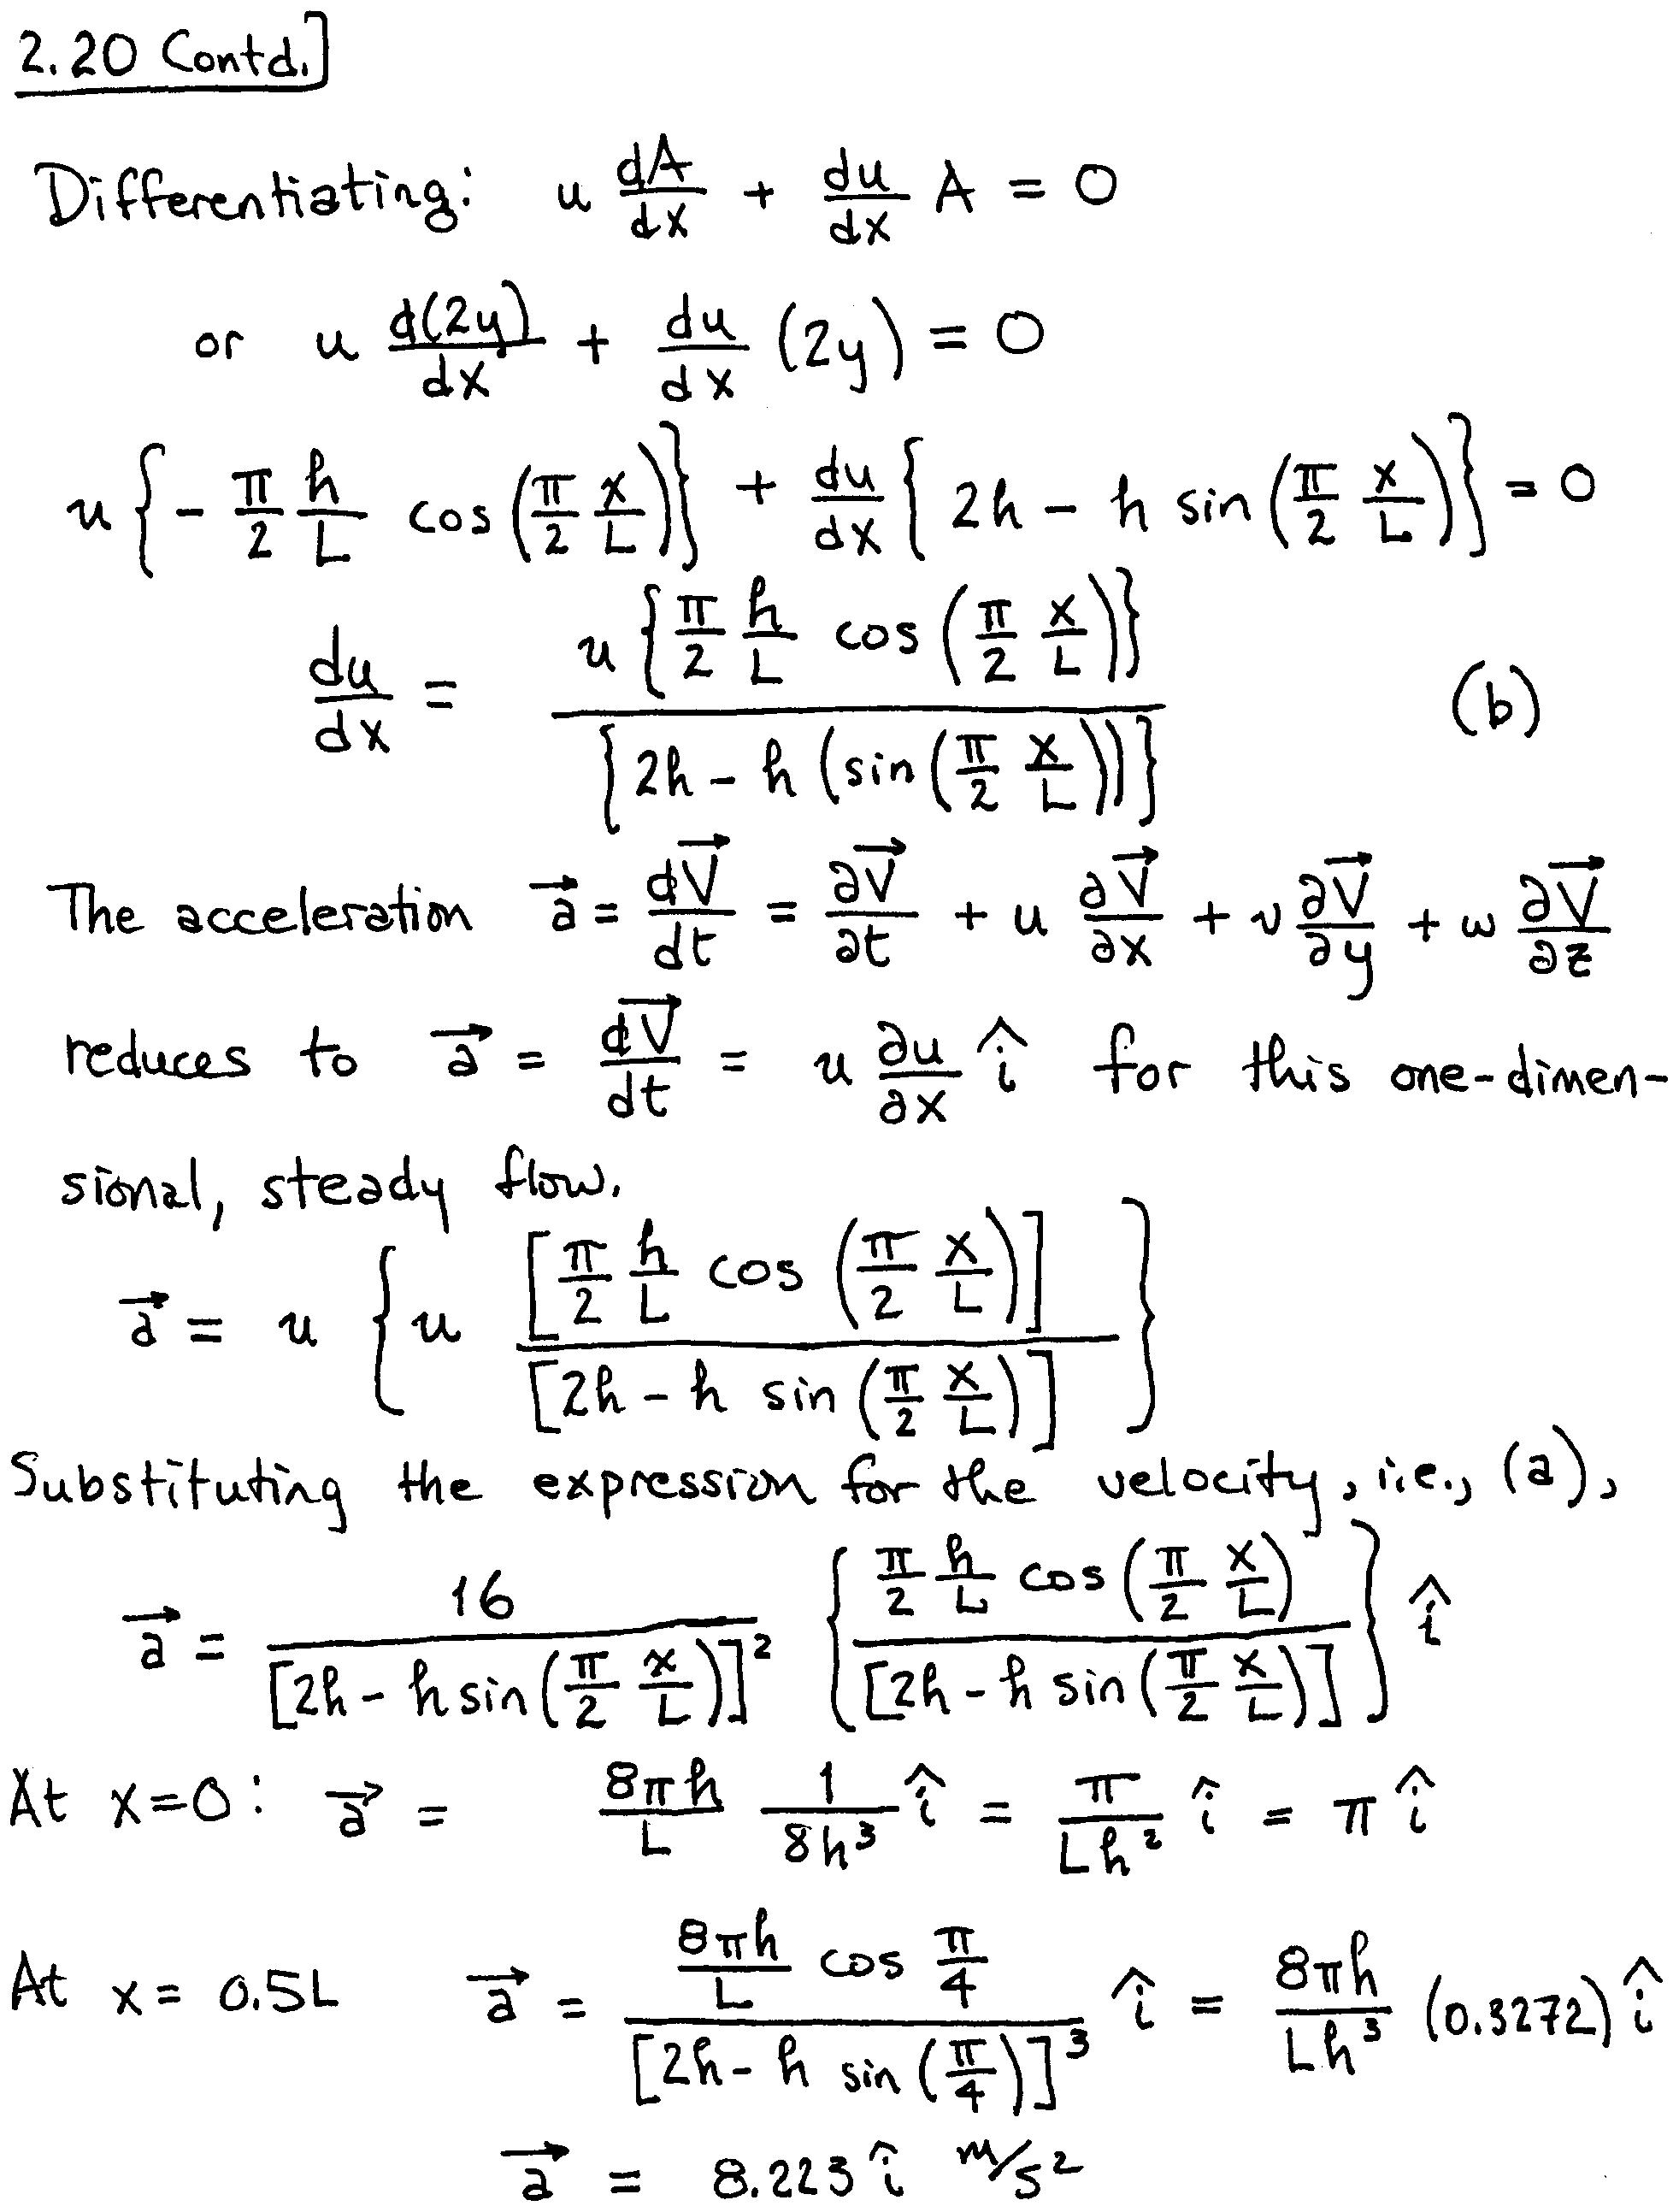 2.20 Contd.]
Differentiating: u dA/dx + du/dx A = 0
or u d(2y)/dx + du/dx (2y) = 0
u { - π/2 h/L cos (π/2 x/L) } + du/dx { 2h - h sin (π/2 x/L) } = 0
du/dx = u { π/2 h/L cos (π/2 x/L) } / { 2h - h (sin (π/2 x/L)) } (b)
The acceleration a⃗ = dV⃗/dt = ∂V⃗/∂t + u ∂V⃗/∂x + v ∂V⃗/∂y + w ∂V⃗/∂z
reduces to a⃗ = dV⃗/dt = u ∂u/∂x î for this one-dimen-
sional, steady flow.
a⃗ = u { u [π/2 h/L cos (π/2 x/L)] / [2h - h sin (π/2 x/L)] }
Substituting the expression for the velocity, i.e., (a),
a⃗ = 16 / [2h - h sin (π/2 x/L)]² { π/2 h/L cos (π/2 x/L) / [2h - h sin (π/2 x/L)] } î
At x=0: a⃗ = 8πh/L 1/8h³ î = π/Lh² î = π î
At x = 0.5L a⃗ = 8πh/L cos π/4 / [2h - h sin (π/4)]³ î = 8πh/Lh³ (0.3272) î
a⃗ = 8.223 î m/s²